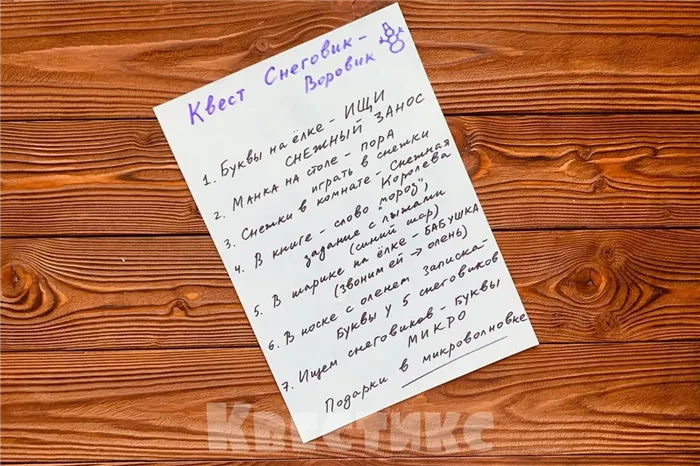 Квест Снеговик-
Воровик
1. Буквы на ёлке - ИЩИ
СНЕЖНЫЙ ЗАНОС
2. Манка на столе - пора
играть в снежки
3. Снежки в комнате - Снежная
Королева
4. В книге - слово "мороз",
задание с лыжами
(синий шар)
5. В шарике на ёлке - БАБУШКА
(звоним ей → олень)
6. В носке с оленем записка-
Буквы у 5 снеговиков
7. Ищем снеговиков - Буквы
МИКРО
Подарки в микроволновке
Квестикс